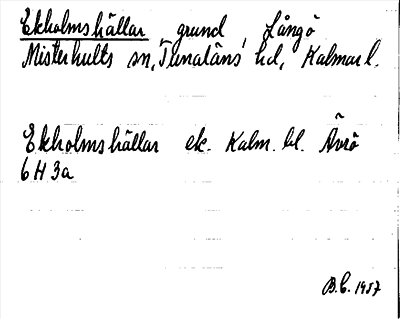 Ekholmshällar, grund, Långö
Misterhults sn, Tunaläns hd, Kalmar l.
Ekholmshällar ek. Kalm. bl. Ävrö
6 H 3a
B.C. 1957